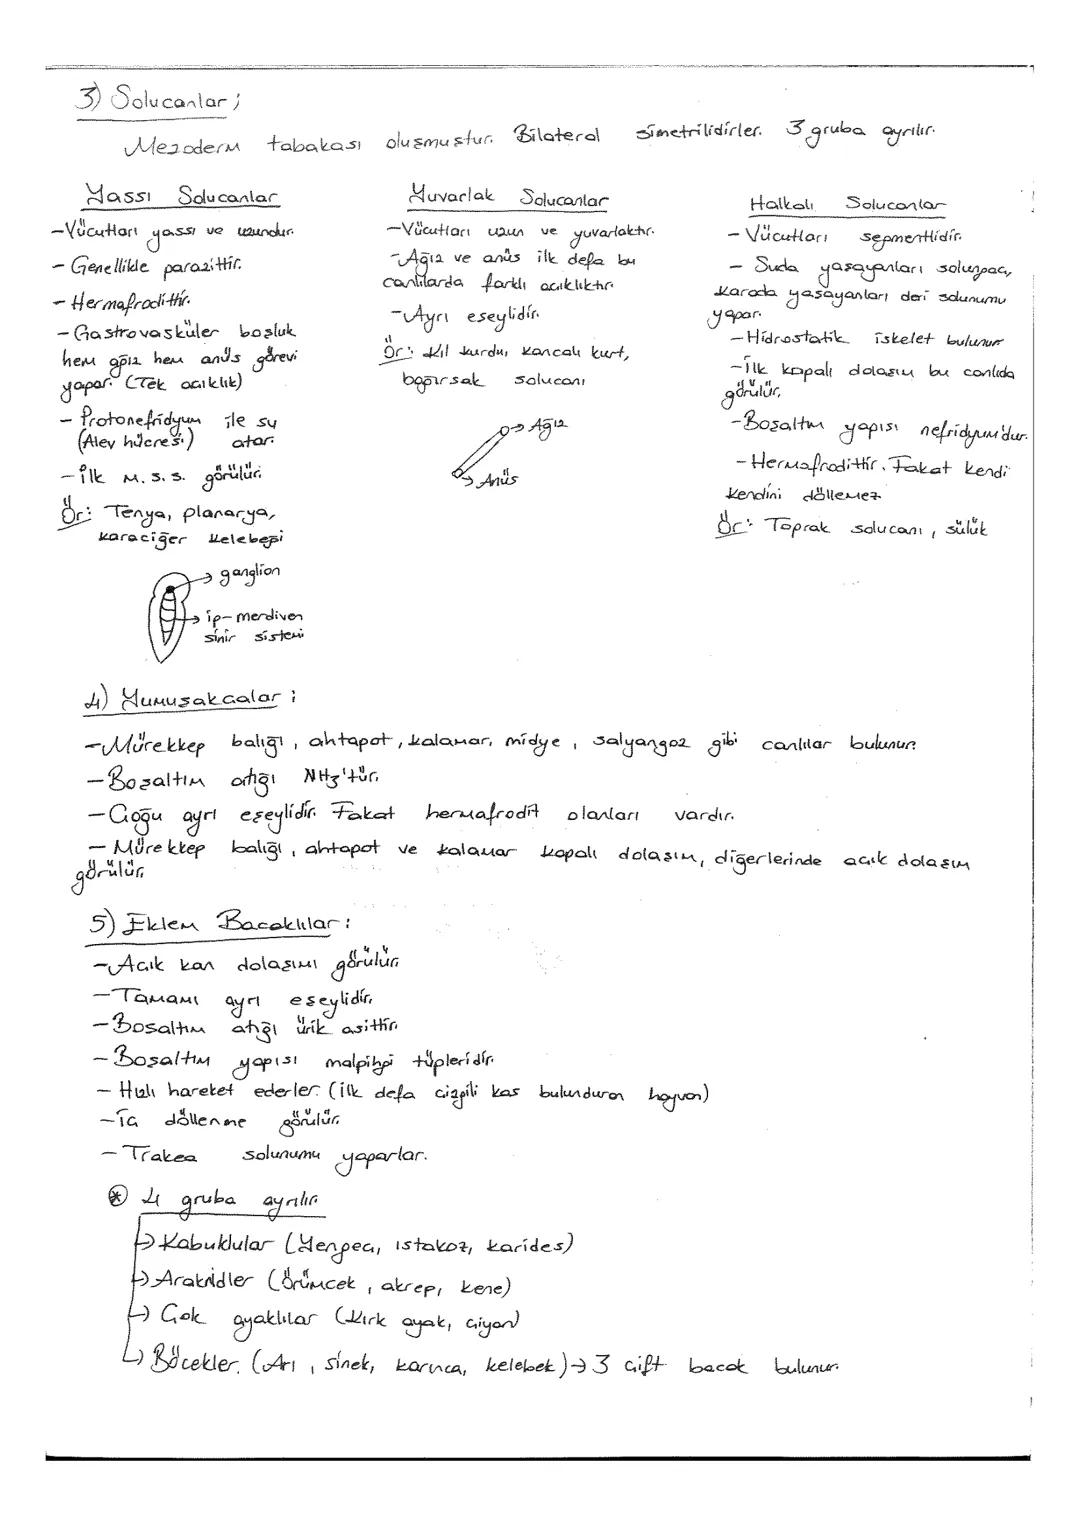 3) Solucanlar;
Mezoderm tabakası oluşmuştur. Bilateral simetrilidirler. 3 gruba ayrılır.
Yassı Solucanlar
-Vücutları yassı ve uzundur.
- Genellikle parazittir.
- Hermafrodittir.
- Gastrovasküler boşluk
hem ağız hem anüs görevi
yapar. (Tek açıklık)
- Protonefridyum ile su
(Alev hücresi) atar.
- İlk M.S.S. görülür.
Ör: Tenya, planarya,
karaciğer kelebeği
ganglion
ip-merdiven
sinir sistemi
Yuvarlak Solucanlar
-Vücutları uzun ve yuvarlaktır.
-Ağız ve anüs ilk defa bu
canlılarda farklı açıklıktır.
-Ayrı eşeylidir.
Ör: Kıl kurdu, kancalı kurt,
bağırsak solucanı
Ağız
Anüs
Halkalı Solucanlar
- Vücutları segmentlidir.
- Suda yaşayanları solungaç,
karada yaşayanları deri solunumu
yapar.
-Hidrostatik iskelet bulunur
-İlk kapalı dolaşım bu canlıda
görülür.
-Boşaltım yapısı nefridyum'dur.
-Hermafrodittir. Fakat kendi
kendini döllemez
Ör: Toprak solucanı, sülük
4) Yumuşakçalar:
-Mürekkep balığı, ahtapot, kalamar, midye, salyangoz gibi canlılar bulunur.
-Boşaltım artığı NH3'tür.
-Çoğu ayrı eşeylidir. Fakat hermafrodit olanları vardır.
- Mürekkep balığı, ahtapot ve kalamar kapalı dolaşım, diğerlerinde açık dolaşım
görülür.
5) Eklem Bacaklılar:
-Açık kan dolaşımı görülür.
-Tamamı ayrı eşeylidir.
-Boşaltım atığı ürik asittir.
-Boşaltım yapısı malpihgi tüpleridir.
- Hızlı hareket ederler. (İlk defa çizgili kas bulunduran hayvan)
-İç döllenme görülür.
- Trakea solunumu yaparlar.
* 4 gruba ayrılır
→ Kabuklular (Yengeç, ıstakoz, karides)
→ Araknidler (Örümcek, akrep, kene)
→ Çok ayaklılar (Kırk ayak, çiyan)
→ Böcekler. (Arı, sinek, karınca, kelebek) → 3 çift bacak bulunur.